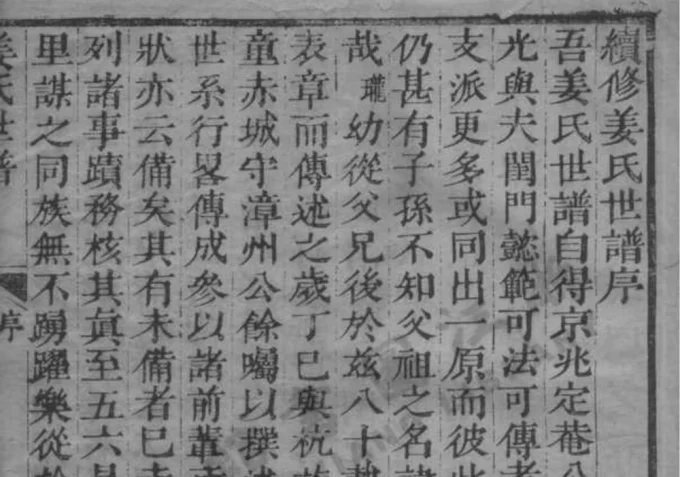 續修姜氏世譜序
吾姜氏世譜自得京兆定菴公
光與夫閨門懿範可法可傳者
支派更多或同出一原而彼此
仍甚有子孫不知父祖之名諱
哉瓏幼從父兄後於兹八十
表章而傳述之歲丁巳與杭
童赤城守漳州公餘囑以撰
世系行畧傳成參以諸前輩
狀亦云備矣其有未備者巳
列諸事蹟務核其眞至五六月
里謀之同族無不踴躍樂從
姜氏世譜
序